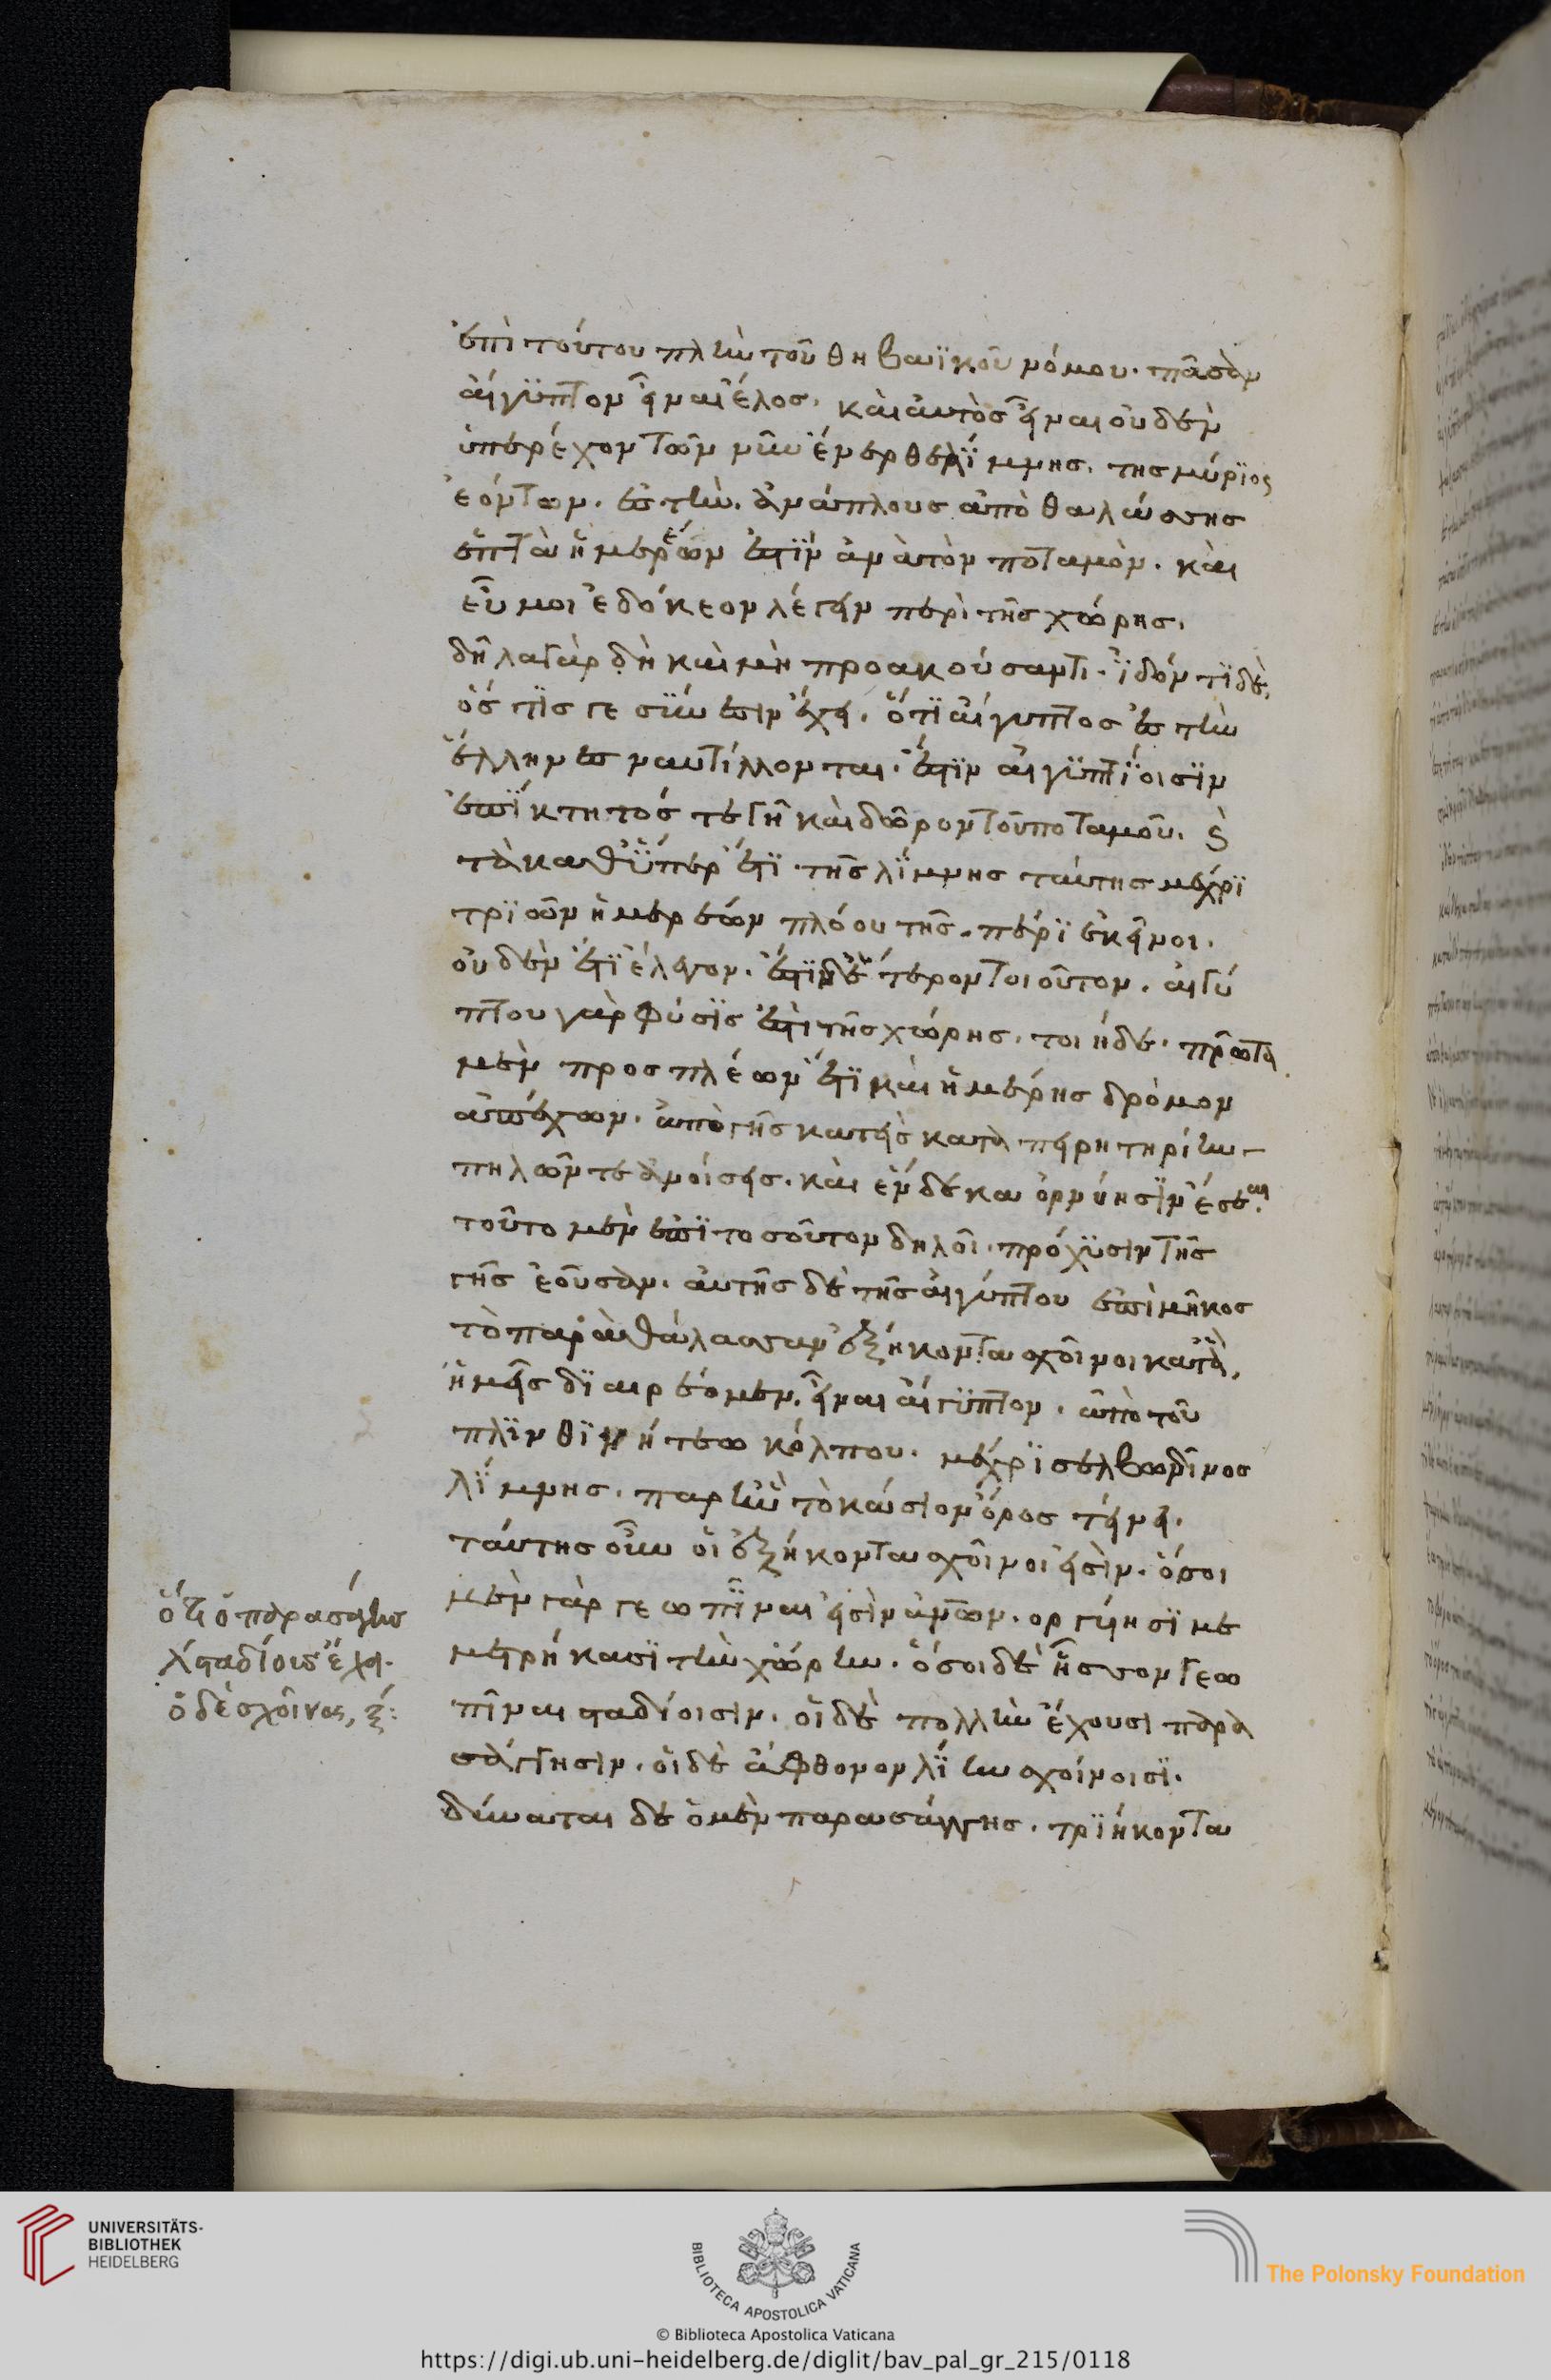 ἐπὶ τούτου πλὴν τοῦ θηβαϊκοῦ νόμου. πᾶσαν
αἴγϋπτον εἶναι ἕλος. καὶ αὐτὸς εἶναι οὐδὲν
ὑπερέχον τῶν νῦν ἔνερθε λΐμνης. τῆς μύρϊος
ἐόντων. ἐς τὴν. ἀνάπλους ἀπὸ θαλάσσης
ἑπτὰ ἡμερέων ἐστῒν ἀνὰ τὸν ποταμὸν. καὶ
εὖ μοι ἐδόκεον λέγειν περὶ τῆς χώρης.
δῆλα γὰρ δὴ καὶ μὴ προακούσαντι. ἰδόντϊ δὲ.
ὅστϊς γε σΰνεσιν ἔχει. ὅτϊ αἴγυπτος ἐς τὴν
ἕλληνες ναυτίλλονται. ἐστϊν αἰγϋπτΐοισϊν
ἐπΐκτητός τε γῆ καὶ δῶρον τοῦ ποταμοῦ. ϛ
τὰ καθΰπερ ἔτϊ τῆς λΐμνης ταύτης μέχρϊ
τρϊῶν ἡμερέων πλόου τῆς. πέρϊ ἐκεῖνοι.
οὐδὲν ἔτϊ ἔλεγον. ἔστϊ δὲ ἕτερον τοιοῦτον. αἰγύ
πτου γὰρ φύσϊς ἐστὶ τῆς χώρης. τοιήδε. πρῶτα
μὲν προσπλέων ἔτϊ καὶ ἡμέρης δρόμον
ἀπέχων. ἀπὸ γῆς κατεὶς καταπειρητηρίην
πηλόν τε ἀνοίσεις. καὶ ἕνδεκα ὀργυιῇσϊν ἔσεαι.
τοῦτο μὲν ἐπῒ τοσοῦτον δηλοῖ. πρόχϋσιν τῆς
γῆς ἐοῦσαν. αὐτῆς δὲ τῆς αἰγύπτου ἐπὶ μῆκος
τὸ παρὰ θάλασσαν ἑξήκοντα σχοῖνοι κατὰ,
ἡμεῖς δϊαιρέομεν. εἶναι αἴγϋπτον. ἀπὸ τοῦ
πλϊνθϊνήτεω κόλπου. μέχρϊ σερβωνῖδος
λΐμνης. παρ' ἣν τὸ κάσιον ὄρος τείνει.
ταύτης ὦν οἱ ἑξήκοντα σχοῖνοι εἰσὶν. ὅσοι
μὲν γὰρ γεωπεῖναι εἰσὶν ἀνθρώπων. ὀργυιῇσϊ με
μετρήκασϊ τὴν χώρην. ὅσοι δὲ ἧσσον γεω
πεῖναι σταδίοισιν. οἳ δὲ πολλὴν ἔχουσι παρα
σάγγησιν. οἳ δὲ ἄφθονον λΐην σχοίνοισϊ.
δύναται δὲ ὁ μὲν παρασάγγης. τρϊήκοντα
ὅτι ὁ παρασάγγης
λ σταδίους ἔχει.
ὁ δὲ σχοῖνος, ξ:
UNIVERSITÄTS-
BIBLIOTHEK
HEIDELBERG
BIBLIOTECA APOSTOLICA VATICANA
The Polonsky Foundation
© Biblioteca Apostolica Vaticana
https://digi.ub.uni-heidelberg.de/diglit/bav_pal_gr_215/0118